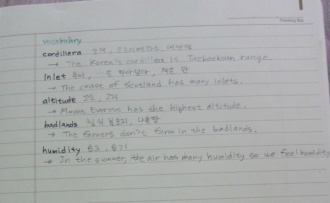 vocabulary
cordillera 산맥,
→ The Korea's cordillera is Taebaeksan range.
Inlet
→ The coast of Scotland has many inlets.
altitude 고도,
→ Mount Everest has the highest altitude.
badlands
→ The farmers don't farm in the badlands.
humidity 습도, 습기
→ In the summer, the air has many humidity so we feel humidity